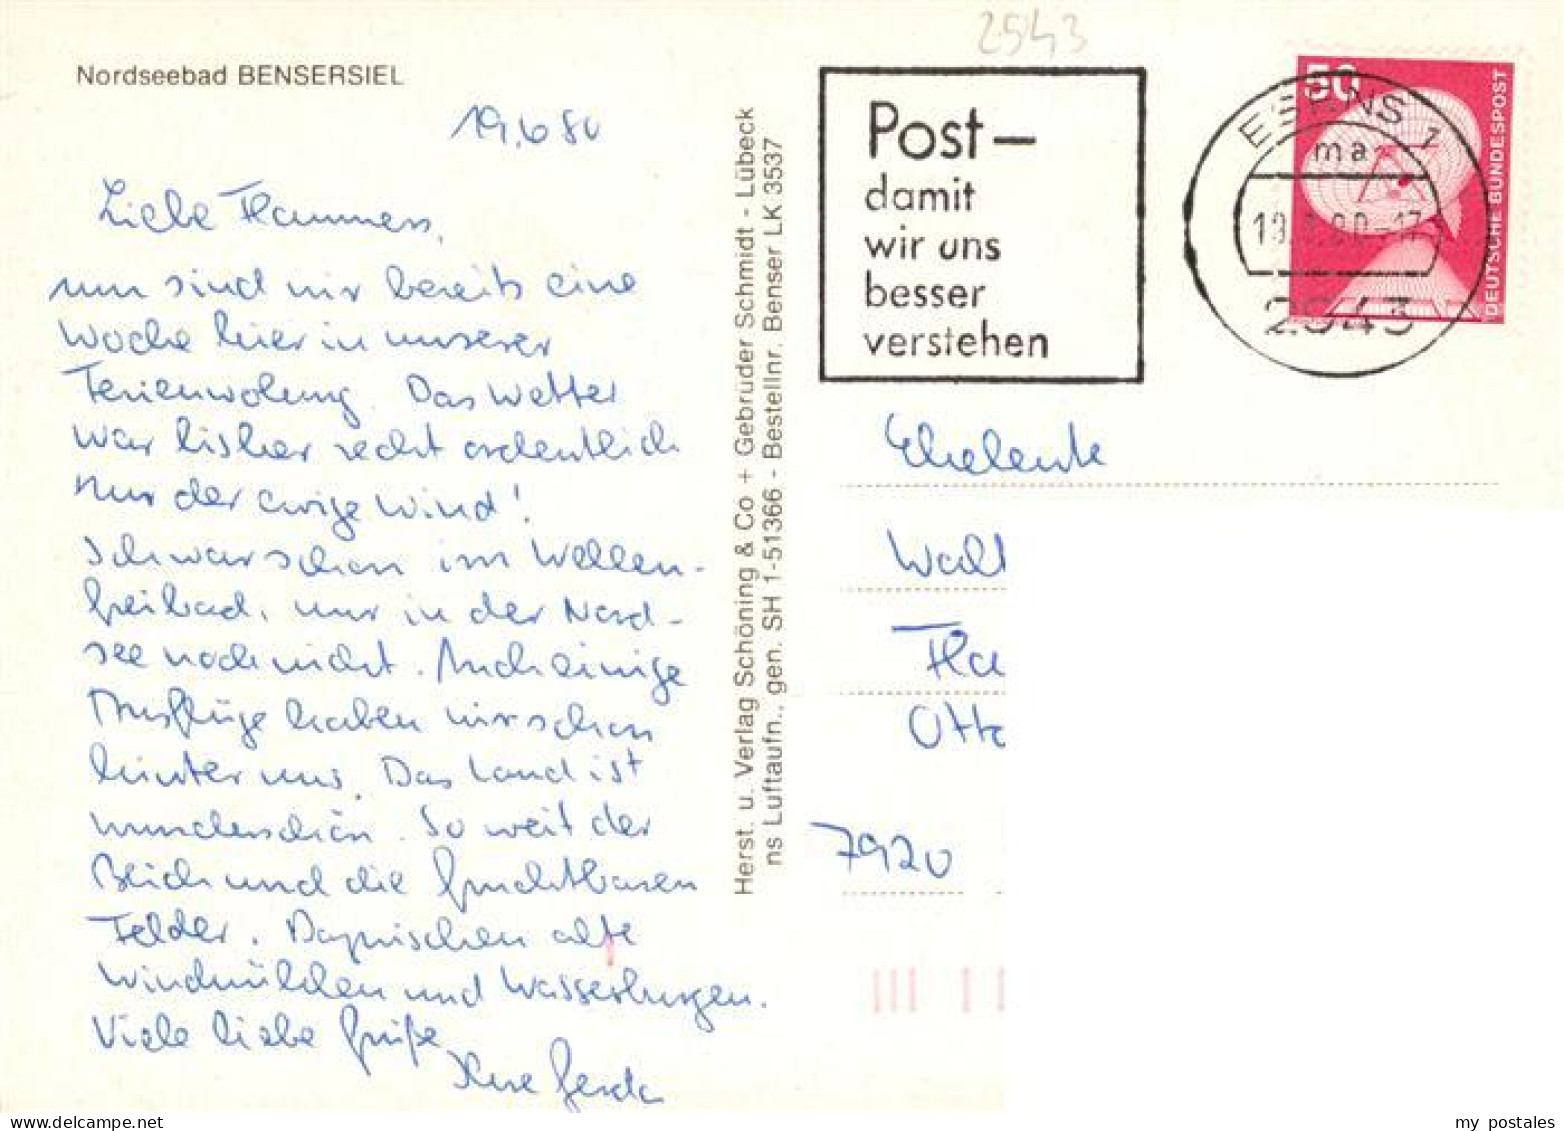 2543
Nordseebad BENSERSIEL
19.6.80
Liebe Flammers,
nun sind wir bereits eine
Woche hier in unserer
Ferienwohnung. Das Wetter
war bisher recht ordentlich
nur der ewige Wind!
Ich war schon im Wellen-
freibad, nur in der Nord-
see noch nicht. Auch einige
Ausflüge haben wir schon
hinter uns. Das Land ist
wunderschön. So weit der
Blick und die fruchtbaren
Felder. Dazwischen alte
Windmühlen und Wasserburgen.
Viele liebe Grüße
Ihre Gerda
Herst. u. Verlag Schöning & Co + Gebrüder Schmidt - Lübeck
ns Luftaufn., gen. SH 1-51366 - Bestellnr. Benser LK 3537
Post –
damit
wir uns
besser
verstehen
50
DEUTSCHE BUNDESPOST
ESENS 1
ma
2943
Eheleute
Wal
Fla
Otto
7920
delcampe.net
my_postales